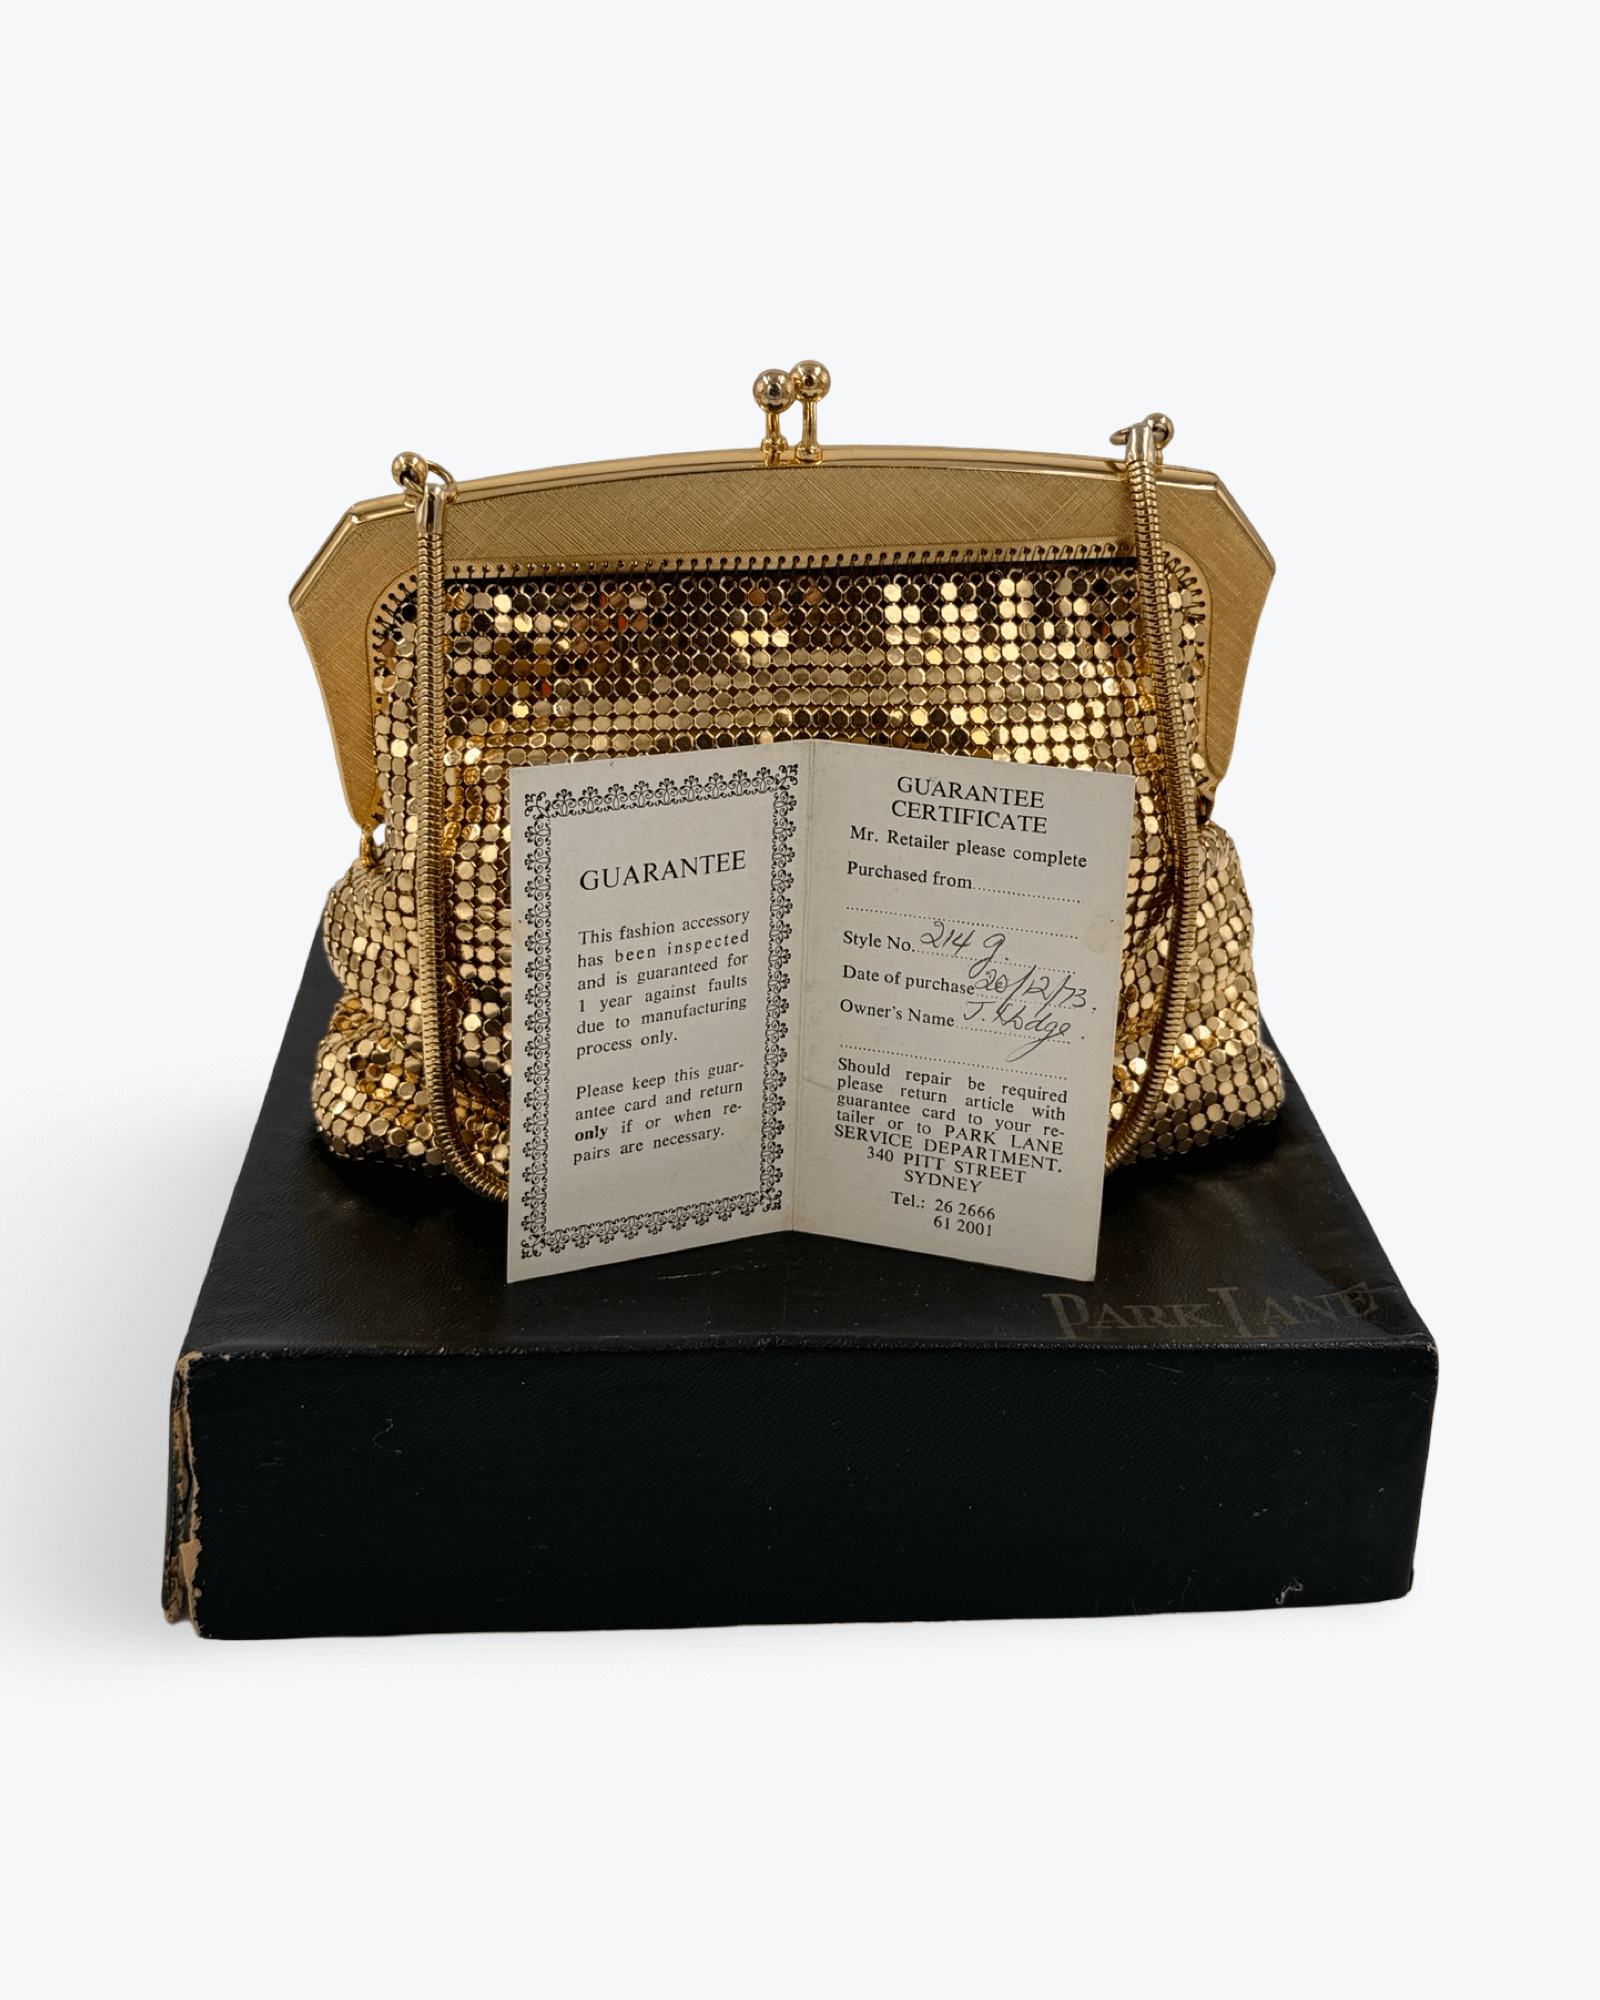 GUARANTEE
This fashion accessory
has been inspected
and is guaranteed for
1 year against faults
due to manufacturing
process only.
Please keep this guar-
antee card and return
only if or when re-
pairs are necessary.
GUARANTEE
CERTIFICATE
Mr. Retailer please complete
Purchased from
Style No. 214 g.
Date of purchase 20/12/73.
Owner's Name J.
Should repair be required
please return article with
guarantee card to your re-
tailer or to PARK LANE
SERVICE DEPARTMENT.
340 PITT STREET
SYDNEY
Tel.: 26 2666
61 2001
PARK LANE